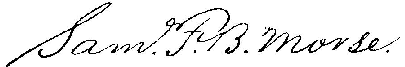 Sam'. F. B. Morse.